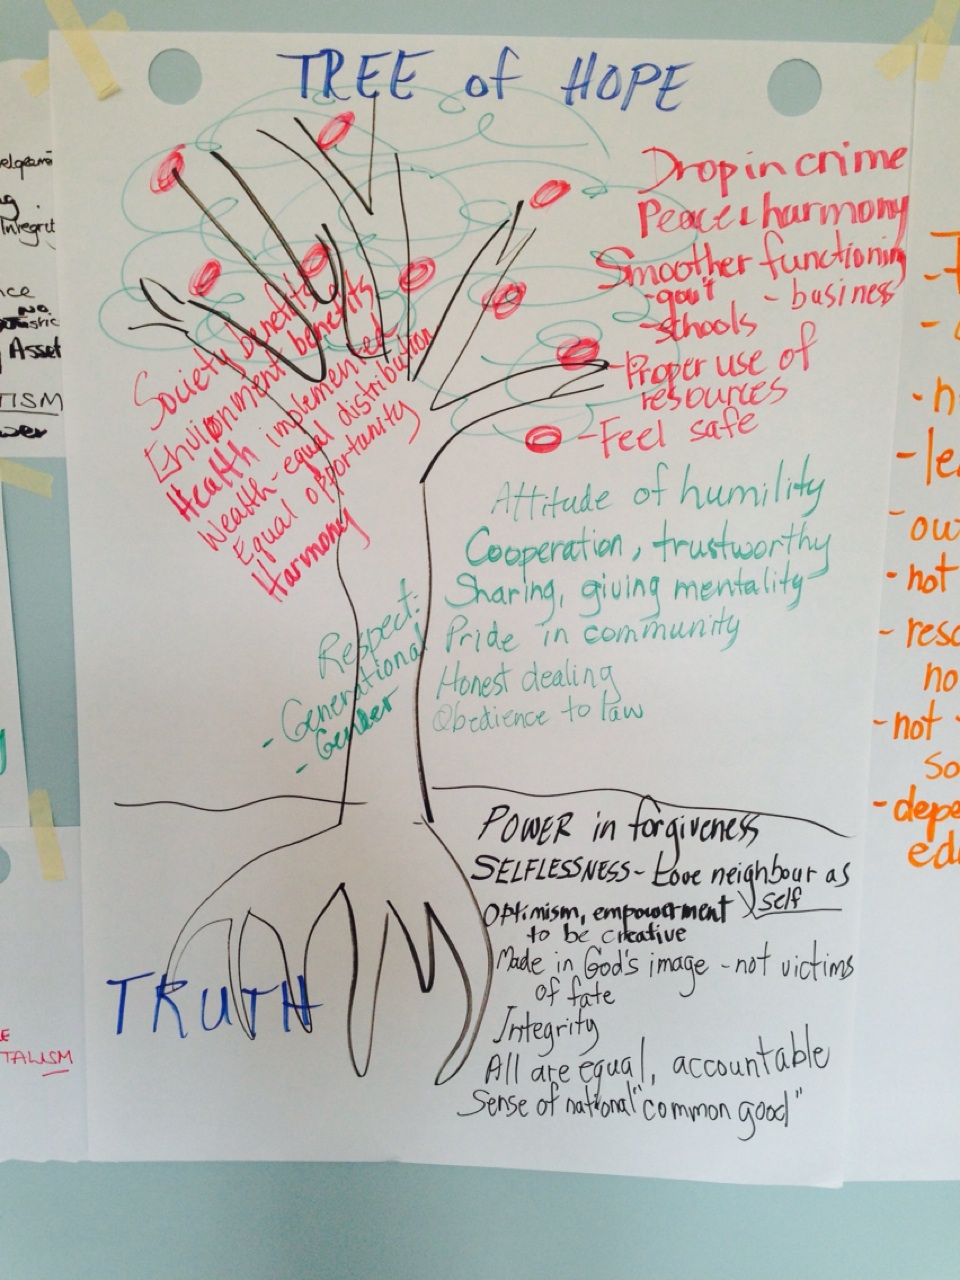 TREE of HOPE
Drop in crime
Peace & harmony
Smoother functioning
- gov't - business
- schools
- Proper use of
resources
- Feel safe
Society benefits
Environment benefits
Health implemented
Wealth - equal distribution
Equal opportunity
Harmony
Attitude of humility
Cooperation, trustworthy
Sharing, giving mentality
Pride in community
Honest dealing
Obedience to law
Respect:
- Generational
- Gender
POWER in forgiveness
SELFLESSNESS - Love neighbour as
self
Optimism, empowerment
to be creative
Made in God's image - not victims
of fate
Integrity
All are equal, accountable
Sense of national "common good"
TRUTH
Integrit
No
Asset
TISM
wer
TALISM
- le
- ow
- not
- reso
no
- not
so
- depe
ed